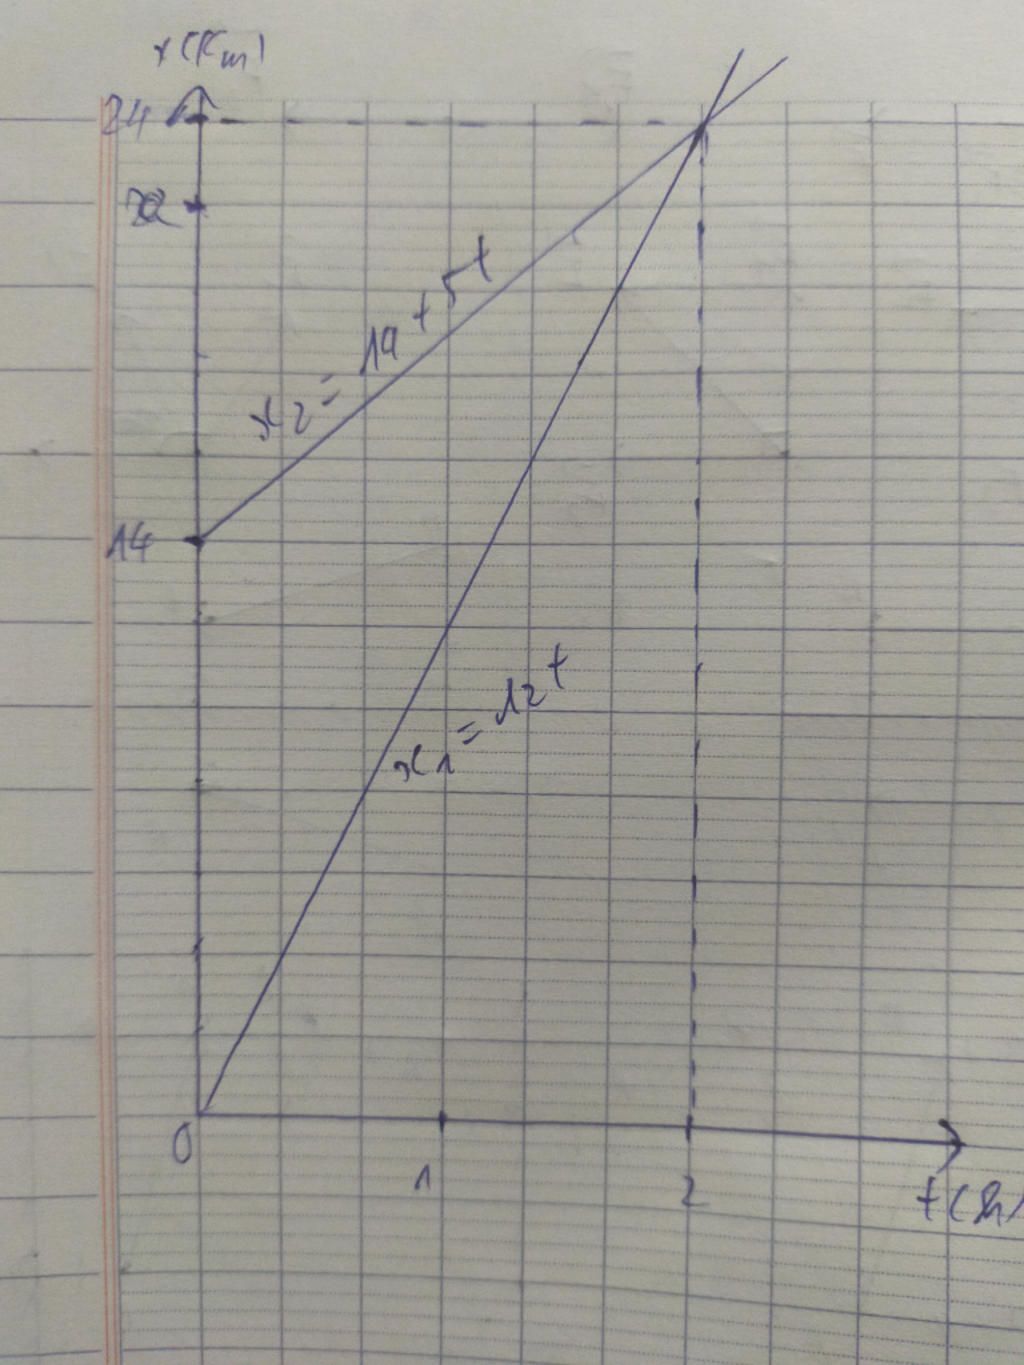 x(Km)
24
22
x₂ = 14 + 5t
14
x₁ = 12t
0
1
2
t(h)